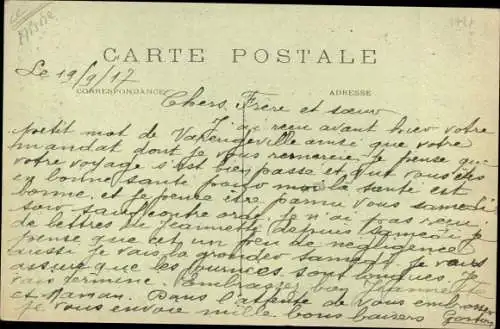 Aisne
CARTE POSTALE
Le 19/9/17
CORRESPONDANCE
ADRESSE
Chers Frère et sœur
J'ai reçu avant hier votre
petit mot de Varengeville ainsi que votre
mandat dont je vous remercie. Je pense que
votre voyage s'est bien passé et que vous êtes
en bonne santé pour moi la santé est
bonne. et je pense être parmi vous samedi
soir sauf contre ordre. Je n'ai pas reçu
de lettres de Jeannette depuis samedi je
pense que cet un peu de négligence
aussi je vais la gronder samedi. Je vous
assure que les journées sont longues. Je
vais terminer. Embrassez bien Jeannette
et Maman. Dans l'attente de vous embrasser
je vous envoie mille bons baisers Gaston